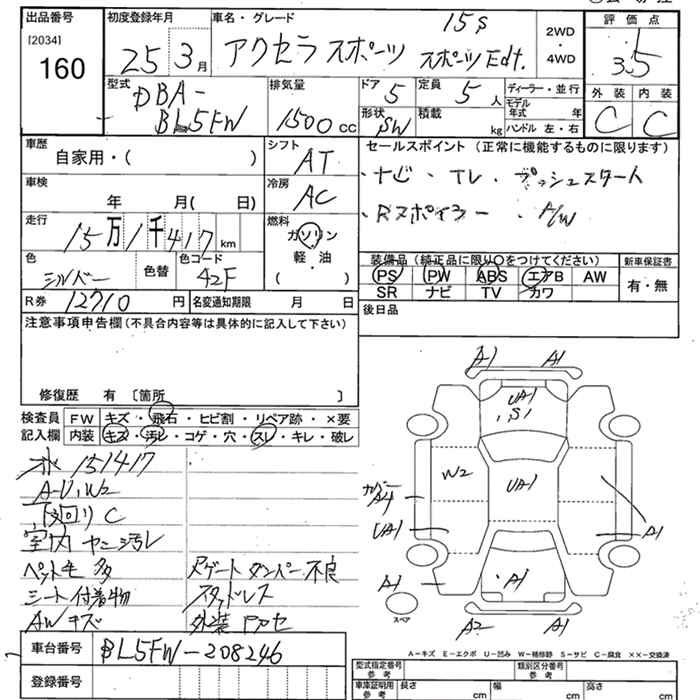 出品番号
[2034]
160
初度登録年月
25 3月
車名・グレード
15s
アクセラ スポーツ スポーツ Edt.
2WD
・
4WD
評価点
3.5
外装 内装
C C
型式
DBA-
BL5FW
排気量
1500 cc
ドア 5
定員 5 人
形状 SW
積載 kg
ディーラー・並行
モデル年式 年
ハンドル 左・右
車歴
自家用・( )
シフト
AT
セールスポイント (正常に機能するものに限ります)
・ナビ・TV・プッシュスタート
・Rスポイラー ・A/W
車検
年 月( 日)
冷房
AC
走行
15万1千417 km
燃料
ガソリン
軽・油
( )
色
シルバー
色替
色コード
42F
装備品 (純正品に限り○をつけてください)
PS PW ABS エアB AW
SR ナビ TV カワ
新車保証書
有・無
R券 12710 円
名変通知期限 月 日
後日品
注意事項申告欄 (不具合内容等は具体的に記入して下さい)
修復歴 有 〔箇所 〕
検査員
記入欄
FW キズ・飛石・ヒビ割・リペア跡・×要
内装 キズ・汚レ・コゲ・穴・スレ・キレ・破レ
151417
A-U, W2
下廻り C
室内 ヤニ汚レ
ペット毛 多
シート 付着物
AW キズ
Rゲート ダンパー不良
スタッドレス
外装
A1 A1
UA1
S1
W2
UA1
A4
UA1
A1
A1
A1
A2 A1
スペア
A-キズ E-エクボ U-凹み W-補修跡 S-サビ C-腐食 XX-交換済
車台番号 BL5FW-208246
登録番号
型式指定番号
参考
類別区分番号
参考
車庫証明用
参考
長さ cm
幅 cm
高さ cm